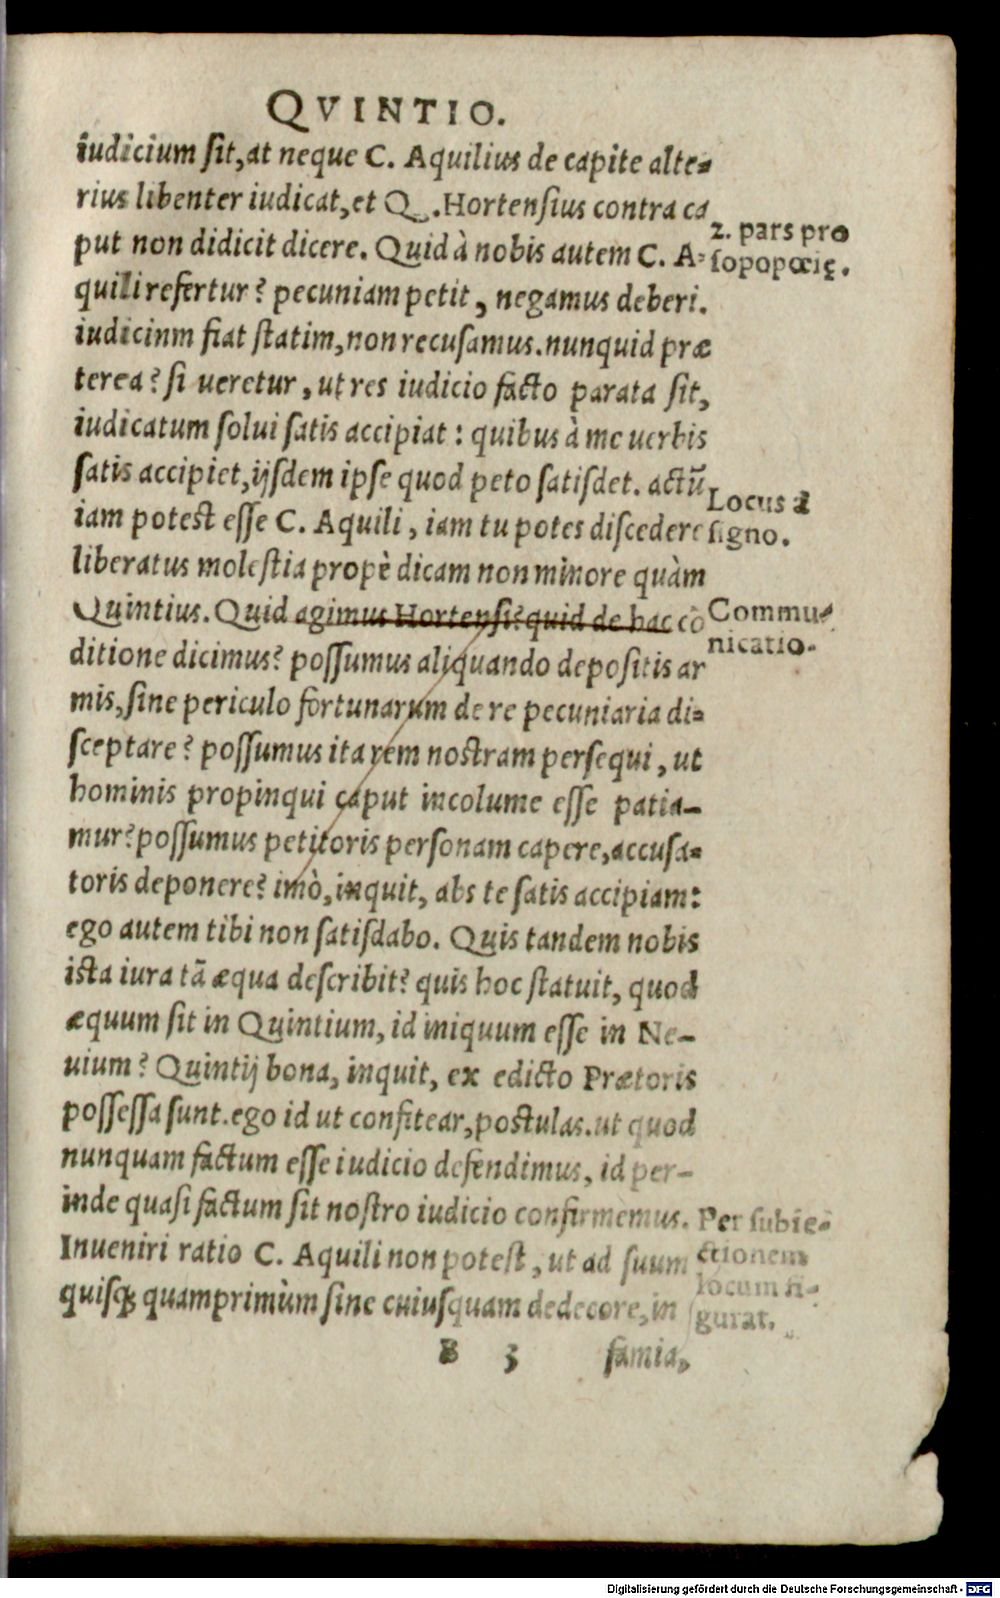 QVINTIO.
iudicium sit, at neque C. Aquilius de capite alte-
rius libenter iudicat, et Q. Hortensius contra ca
put non didicit dicere. Quid à nobis autem C. A-
quili refertur? pecuniam petit, negamus deberi.
iudicinm fiat statim, non recusamus. nunquid præ
terea? si ueretur, ut res iudicio facto parata sit,
iudicatum solui satis accipiat: quibus à me uerbis
satis accipiet, ijsdem ipse quod peto satisdet. actũ
iam potest esse C. Aquili, iam tu potes discedere
liberatus molestia propè dicam non minore quàm
Quintius. Quid agimus Hortensi? quid de hac cõ
ditione dicimus? possumus aliquando depositis ar
mis, sine periculo fortunarum de re pecuniaria di-
sceptare? possumus ita rem nostram persequi, ut
hominis propinqui caput incolume esse patia-
mur? possumus petitoris personam capere, accusa-
toris deponere? imò, inquit, abs te satis accipiam:
ego autem tibi non satisdabo. Quis tandem nobis
ista iura tã æqua describit? quis hoc statuit, quod
æquum sit in Quintium, id iniquum esse in Ne-
uium? Quintij bona, inquit, ex edicto Prætoris
possessa sunt. ego id ut confitear, postulas. ut quod
nunquam factum esse iudicio defendimus, id per-
inde quasi factum sit nostro iudicio confirmemus.
Inueniri ratio C. Aquili non potest, ut ad suum
quisq; quamprimùm sine cuiusquam dedecore, in
B 3 famia,
2. pars pro
sopopœię.
Locus à
signo.
Commu-
nicatio.
Per subie-
ctionem
locum fi-
gurat.
Digitalisierung gefördert durch die Deutsche Forschungsgemeinschaft - DFG